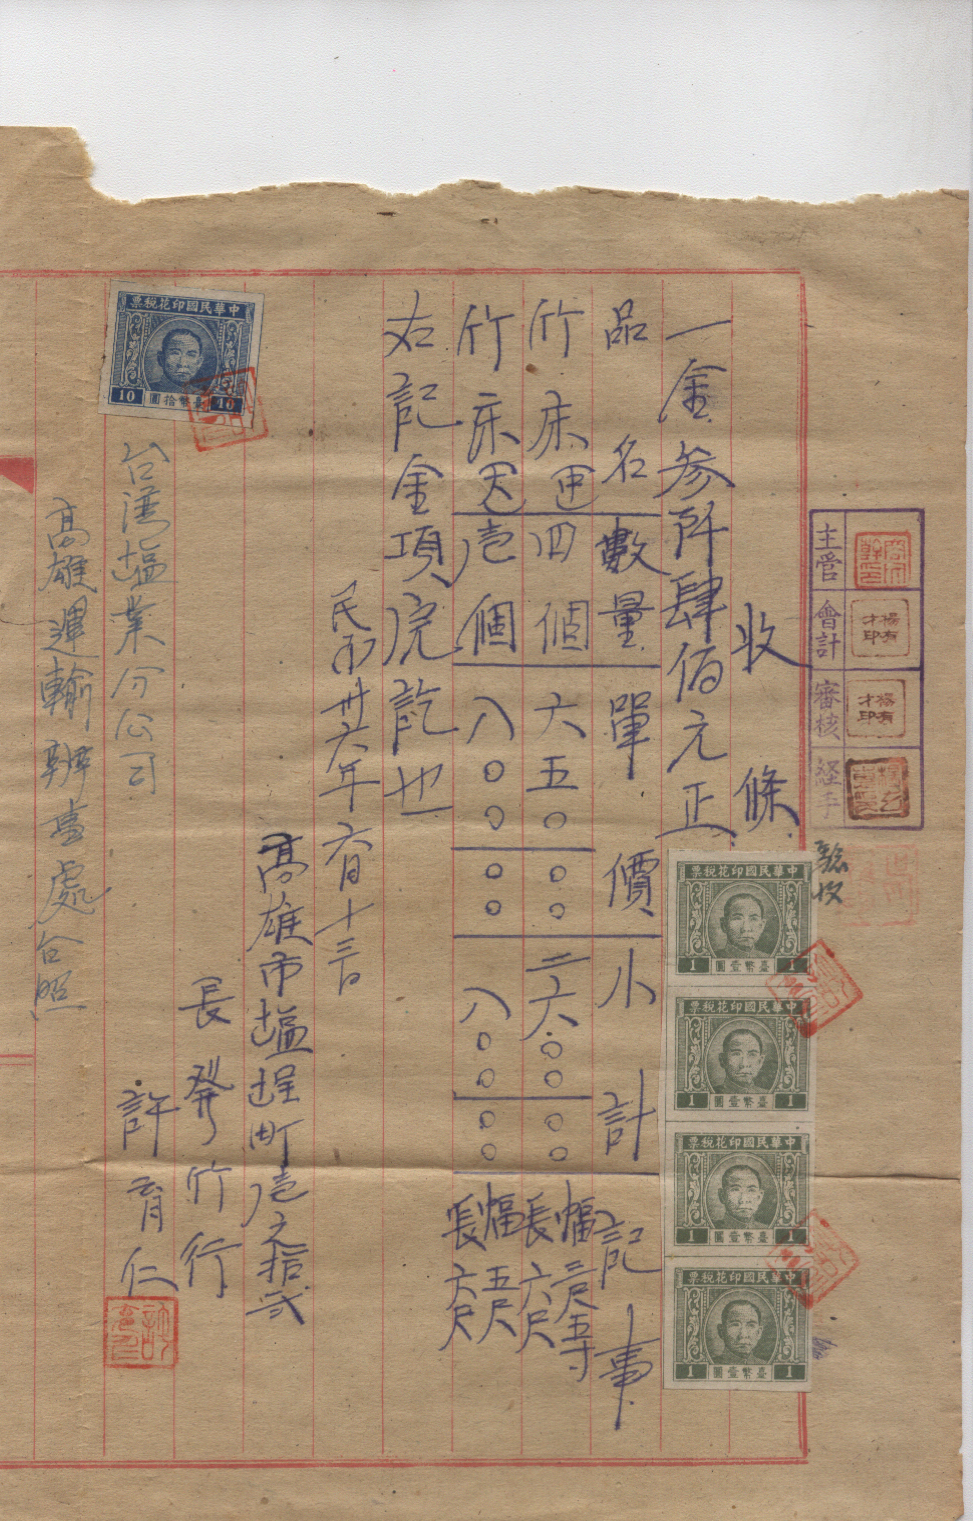 收條
一金參阡肆佰元正
品名 數量 單價 小計 記事
竹床 四個 六五〇〇〇 二六〇〇〇〇 幅三尺五寸 長六尺
竹床 壱個 八〇〇〇〇 八〇〇〇〇 幅五尺 長六尺
右記金項完訖也
民國卅六年六月十三日
高雄市塩埕町壱之拾弐
長發竹行
許育仁
台湾塩業分公司
高雄運輸辦事處台照
主管
會計
審核
経手
楊有才印
楊有才印
驗收
中華民國印花稅票
10 臺幣拾圓 10
中華民國印花稅票
1 臺幣壹圓 1
中華民國印花稅票
1 臺幣壹圓 1
中華民國印花稅票
1 臺幣壹圓 1
中華民國印花稅票
1 臺幣壹圓 1